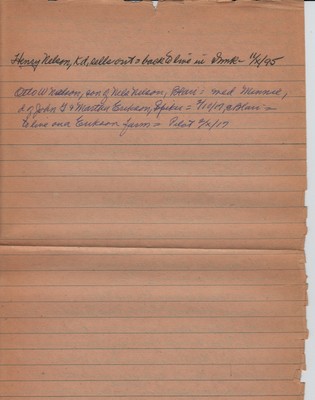 Henry Nelson, Kd, sells out = back to live in Dmk - 11/1/95
Otto W Nelson, son of Nels Nelson, Blair: mrd Minnie,
d of John G & Martha Erickson, = 2/11/17, @ Blair =
to live on a Erickson farm = Pilot 3/2/17